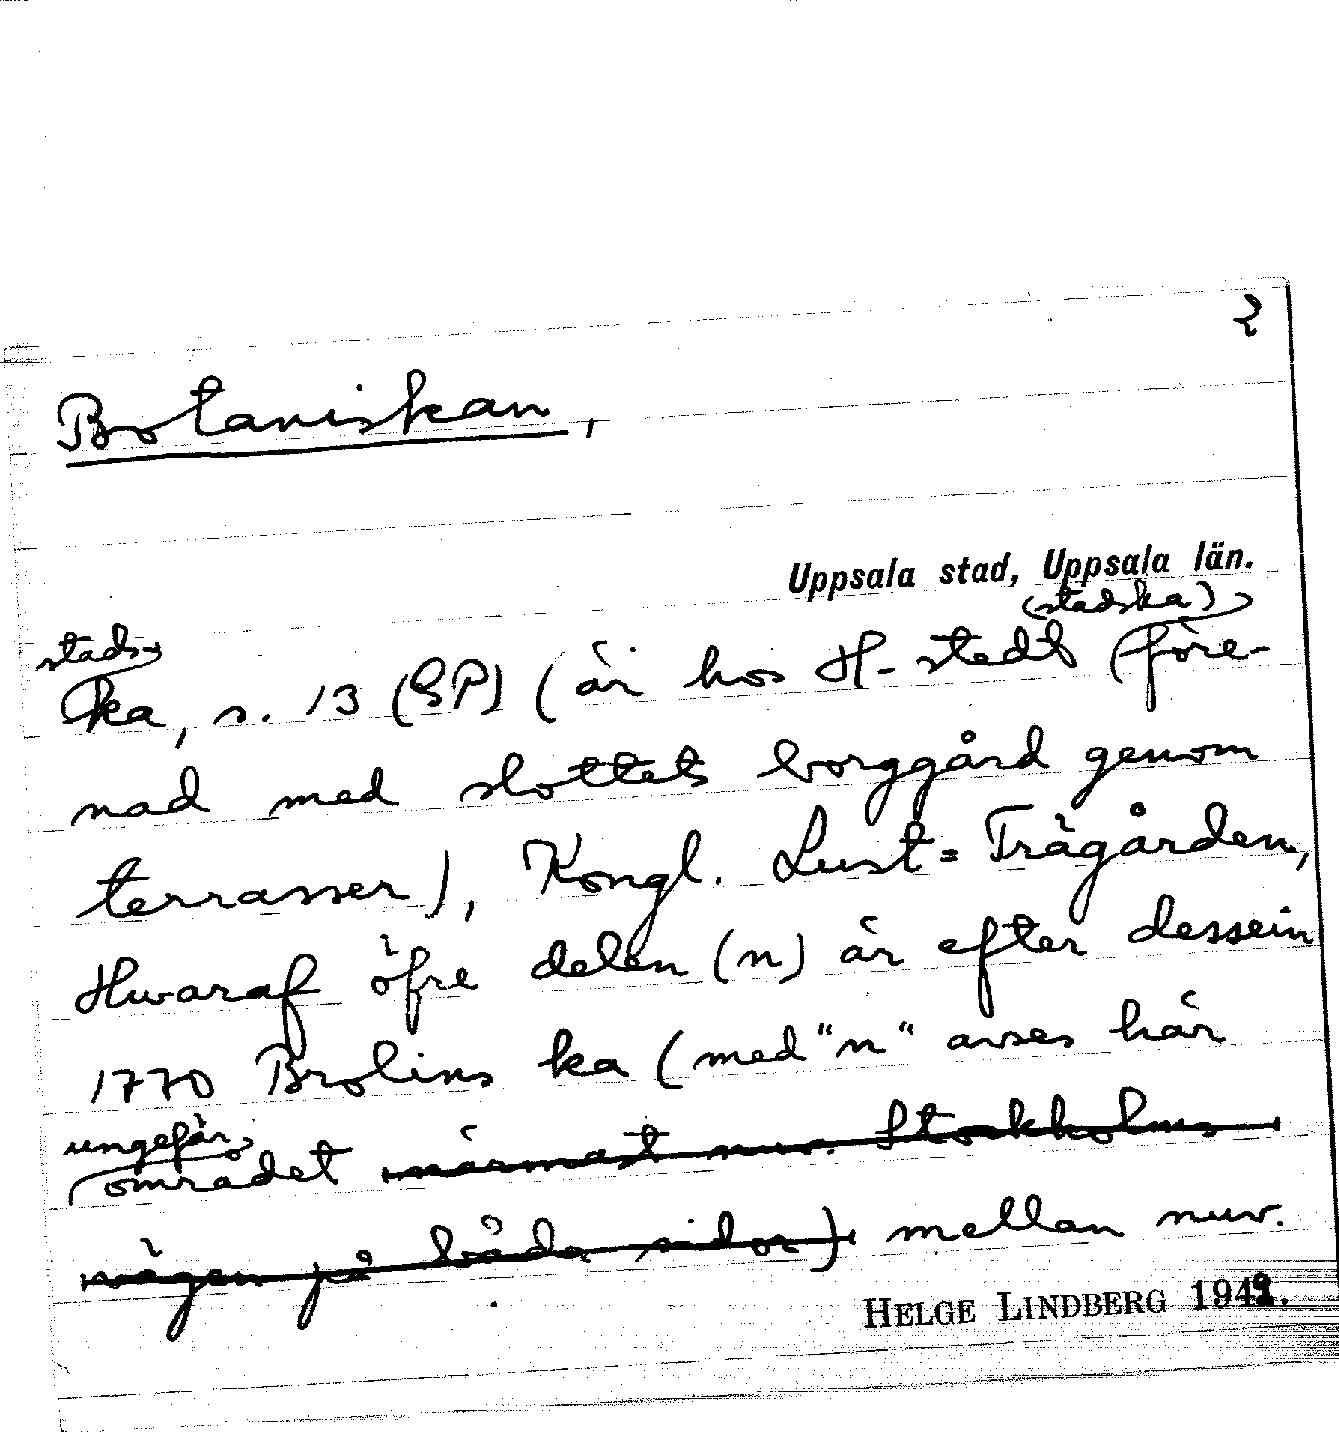 2
Botaniskan,
Uppsala stad, Uppsala län.
(stadska)
stads-
ka, s. 13 (GP) (är hos H-stedt före-
nad med slottets borggård genom
terrasser), Kongl. Lust=Trägården,
Hwaraf öfre delen (n) är efter dessein
1770 Brolins ka (med "n" avses här
ungefär
området närmast nuv. Stockholms
vägen på båda sidor) mellan nuv.
HELGE LINDBERG 1942.